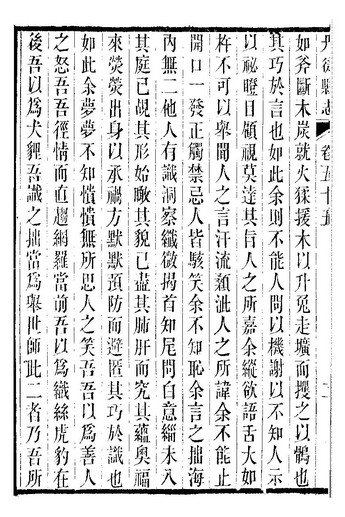 丹徒縣志 卷五十五
如斧斷木炭就火猱援木以升兔走壙而攫之以鶻也
其巧於言也如此余則不能人問以機謝以不知人示
以祕瞪目顧視莫達其旨人之所嘉余縱欲語舌大如
杵不可以舉間人之言汗流顙泚人之所諱余不能止
開口一發正觸禁忌人皆駭笑余不知恥余言之拙海
內無二他人有識洞察纖微揭首知尾問白意緇未入
其庭已覘其形始瞰其貌已盡其肺肝而究其蘊奧福
來熒熒出身以承禍方默默預防而避匿其巧於識也
如此余夢夢不知憒憒無所思人之笑吾吾以爲善人
之怒吾吾徑情而直趨網羅當前吾以爲織絲虎豹在
後吾以爲犬貍吾識之拙當爲舉世師此二者乃吾所